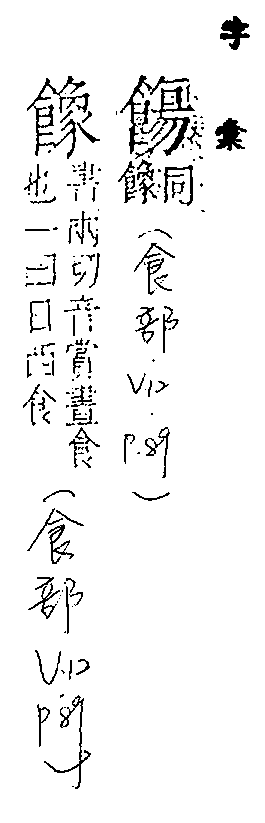 字彙
同
（食部 V.12 P.89）
書兩切音賞晝食
也一曰日西食
（食部 V.12 P.89）